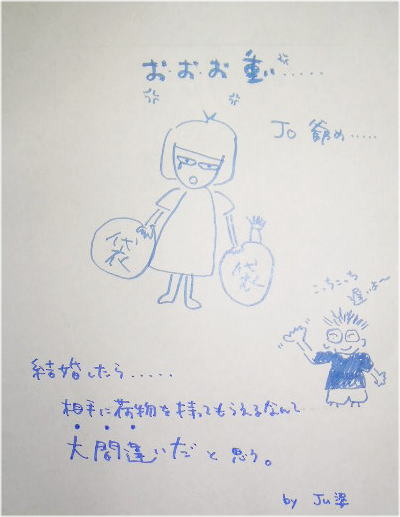 お・お・お重い・・・・・
Jo 爺め・・・・・
袋
袋
こっちこっち
遅いよ〜
結婚したら・・・・・
相手に荷物を持ってもらえるなんて
大間違いだと思う。
by Ju婆